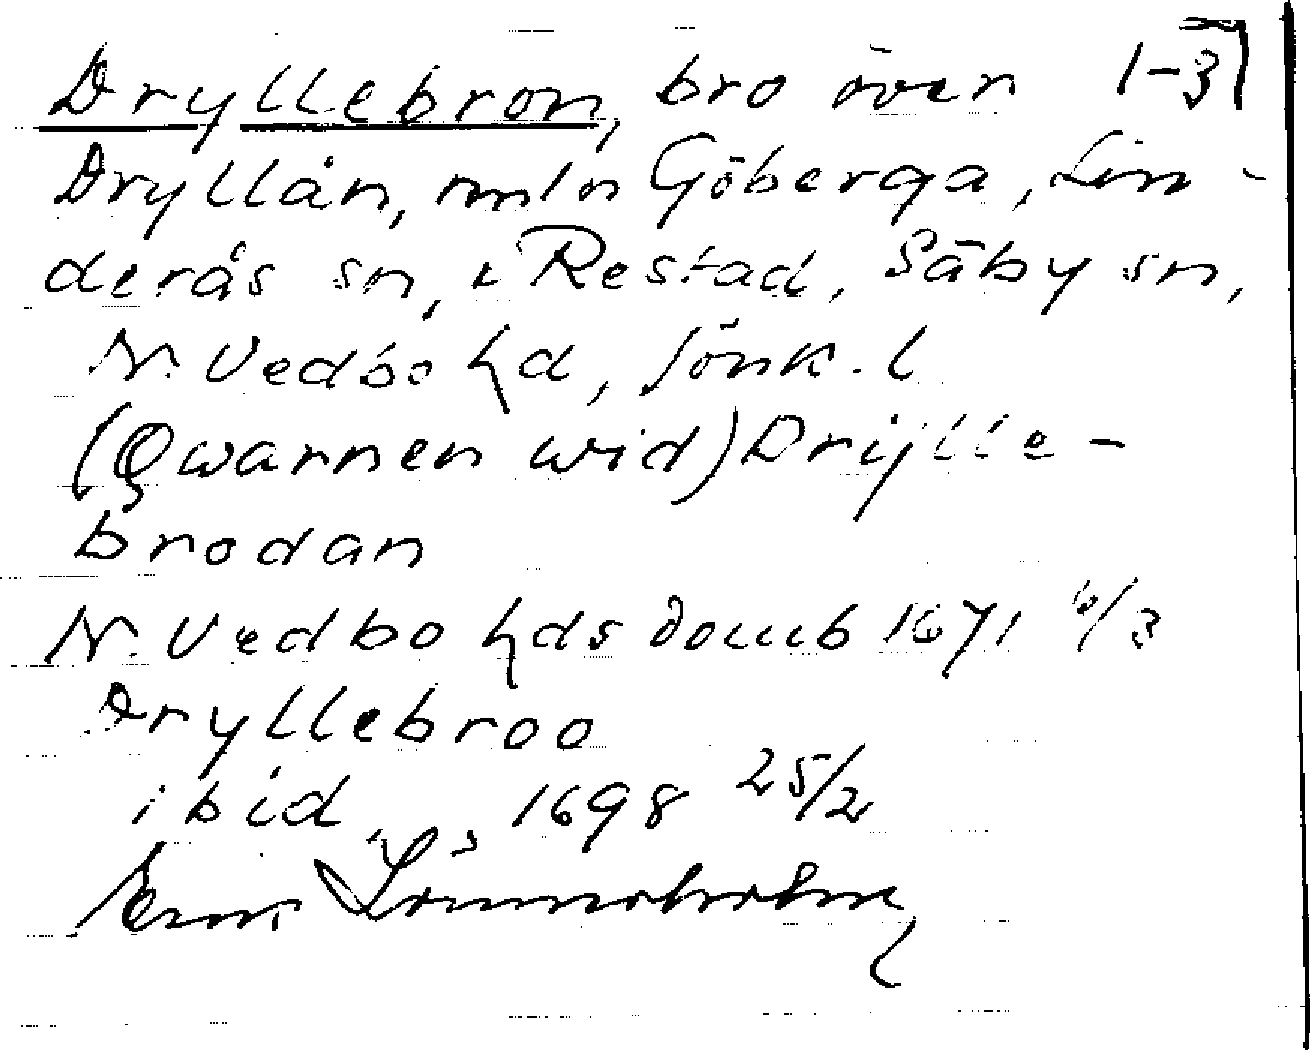 Dryllebron, bro över 1-3
Dryllån, mln Göberga, Lin-
derås sn, & Restad, Säby sn,
N. Vedbo hd, Jönk. l
(Qwarnen wid) Drijlle-
brodan
N. Vedbo hds domb 1671 6/3
Dryllebroo
ibid 1698 25/2